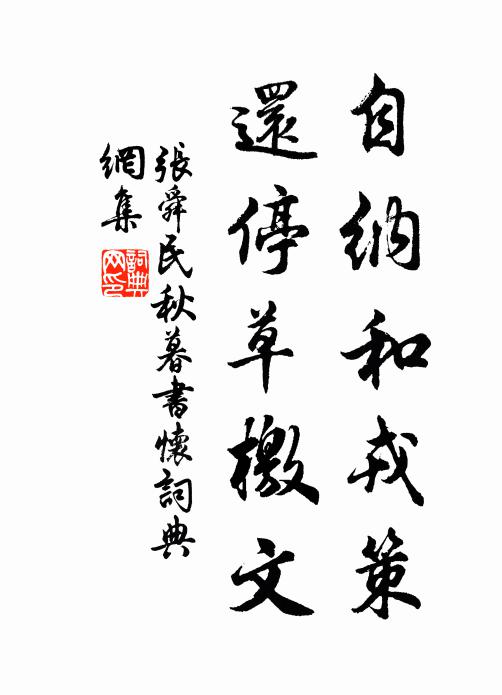 自納和戎策
還停草檄文
張舜民秋暮書懷詞典
網集
詞典
网印